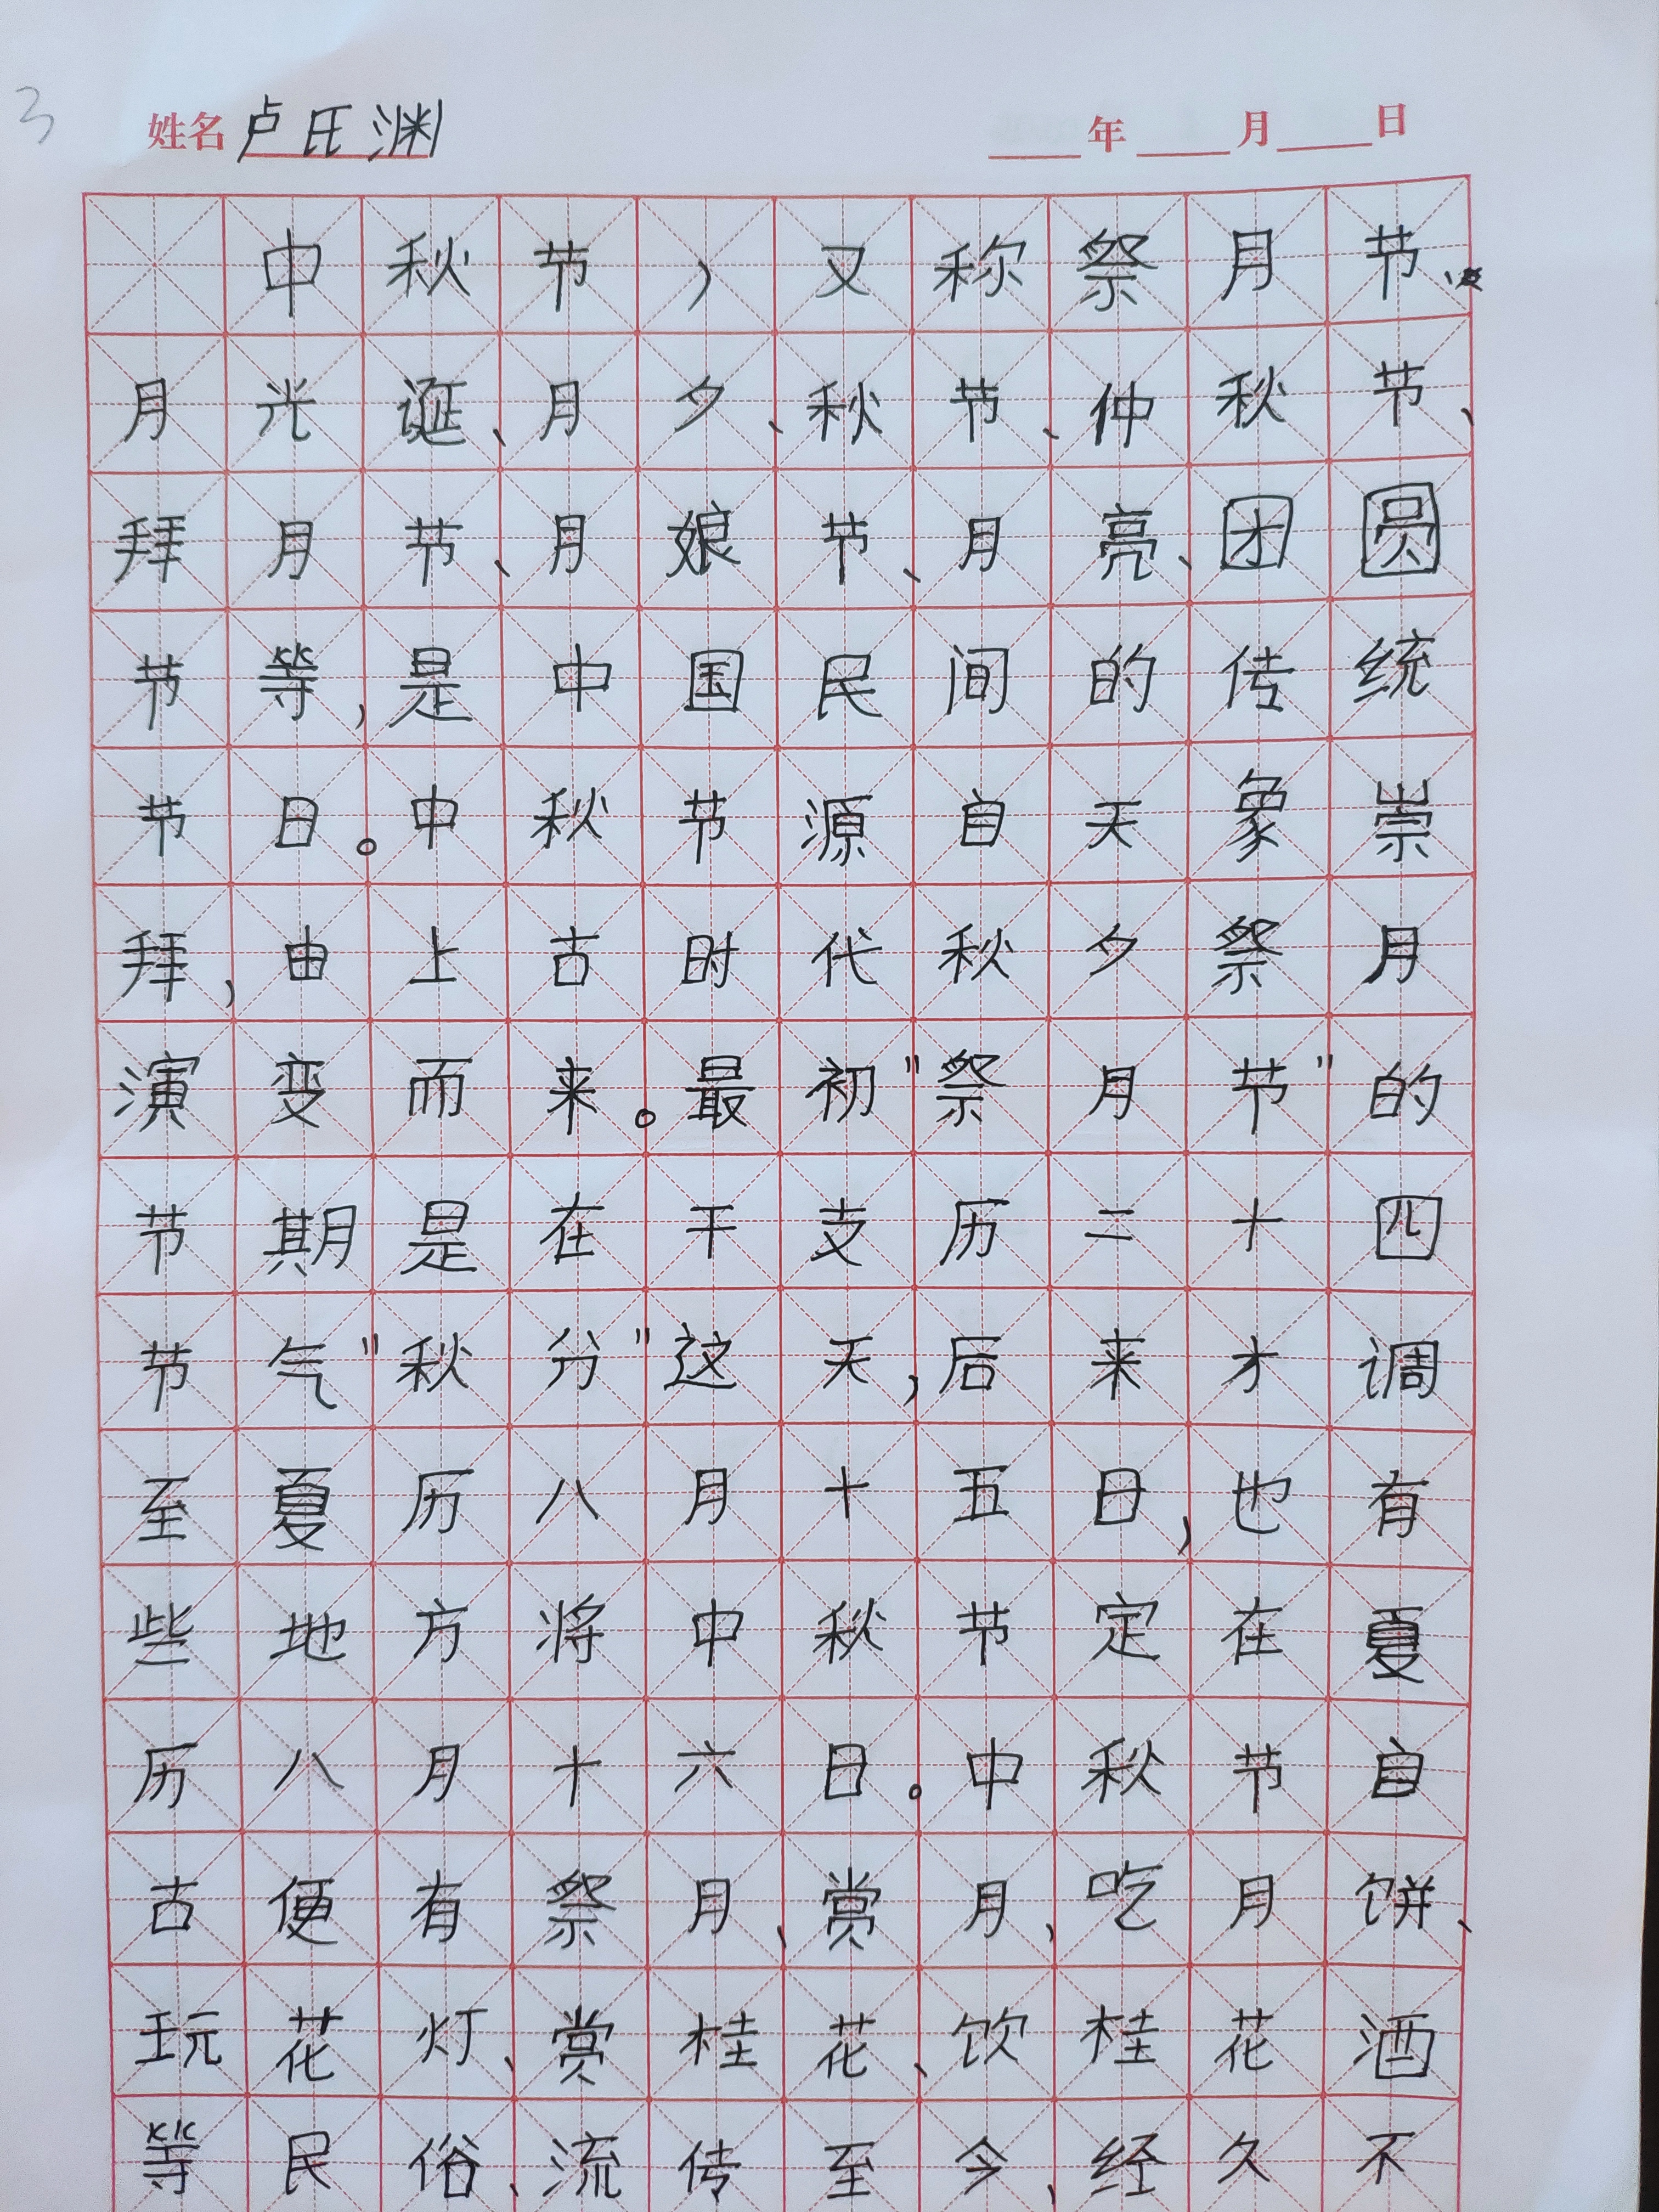 3
姓名卢氏渊 年 月 日
中秋节，又称祭月节、
月光诞、月夕、秋节、仲秋节、
拜月节、月娘节、月亮、团圆
节等，是中国民间的传统
节日。中秋节源自天象崇
拜，由上古时代秋夕祭月
演变而来。最初"祭月节"的
节期是在干支历二十四
节气"秋分"这天，后来才调
至夏历八月十五日，也有
些地方将中秋节定在夏
历八月十六日。中秋节自
古便有祭月、赏月、吃月饼、
玩花灯、赏桂花、饮桂花酒
等民俗、流传至今、经久不